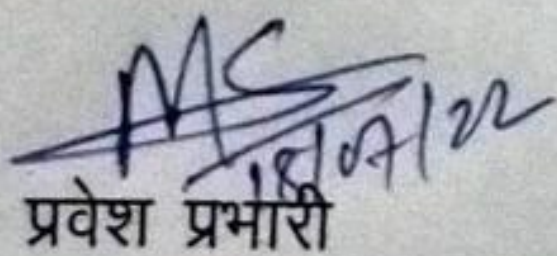 MS
18/07/22
प्रवेश प्रभारी